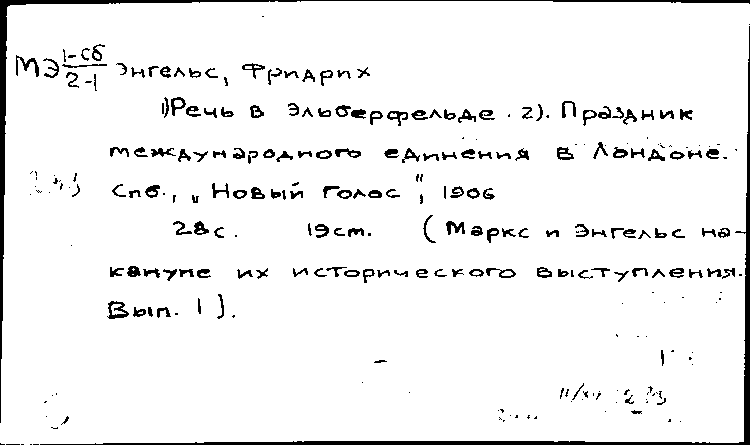 МЭ 1-сб/2-1 Энгельс, Фридрих
1)Речь в Эльберфельде. 2). Праздник
международного единения в Лондоне.
Спб., „Новый голос", 1906
28с. 19cm. (Маркс и Энгельс на-
кануне их исторического выступления.
Вып. 1).